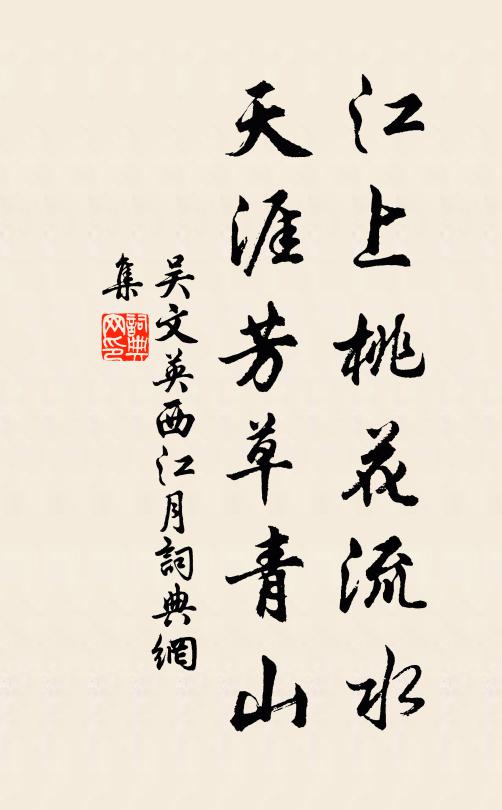 江上桃花流水
天涯芳草青山
吴文英西江月詞典網
集
詞典
网印